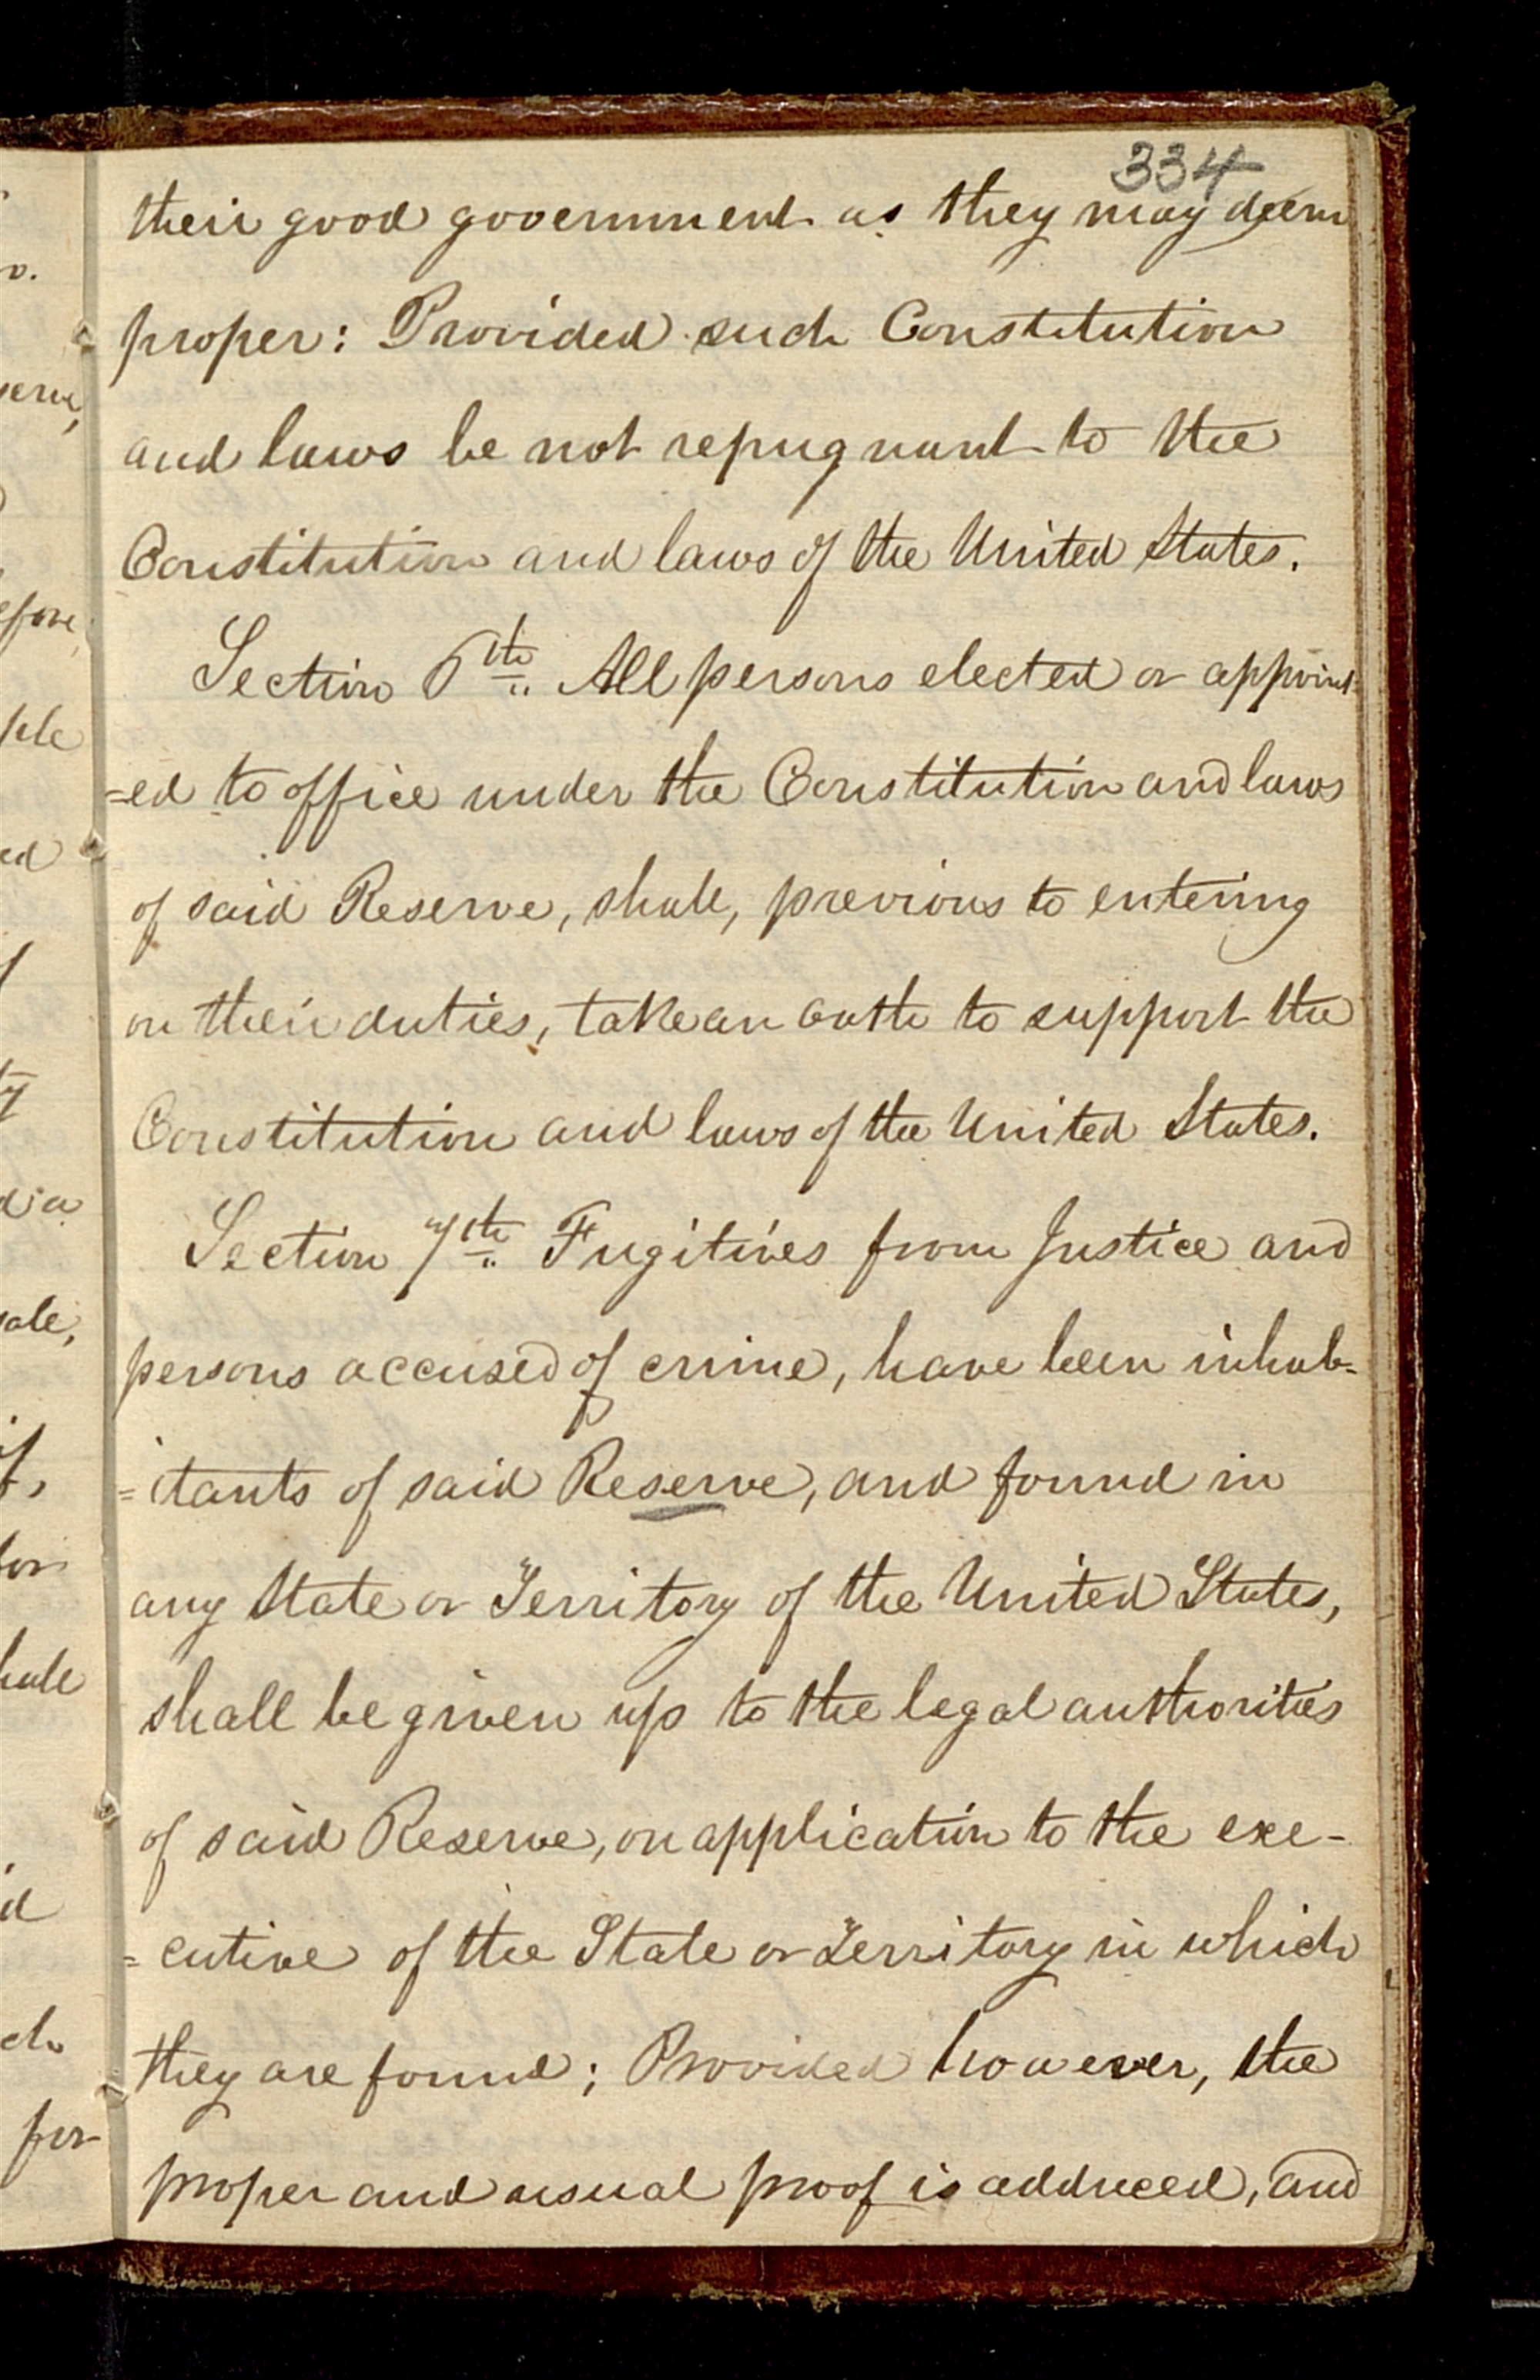 334
their good government as they may deem
proper: Provided such Constitution
and laws be not repugnant to the
Constitution and laws of the United States.
Section 6th. All persons elected or appoint-
=ed to office under the Constitution and laws
of said Reserve, shall, previous to entering
on their duties, take an oath to support the
Constitution and laws of the United States.
Section 7th. Fugitives from Justice and
persons accused of crime, have been inhab=
=itants of said Reserve, and found in
any State or Territory of the United States,
shall be given up to the legal authorities
of said Reserve, on application to the exe-
=cutive of the State or Territory in which
they are found; Provided however, the
proper and usual proof is adduced, and